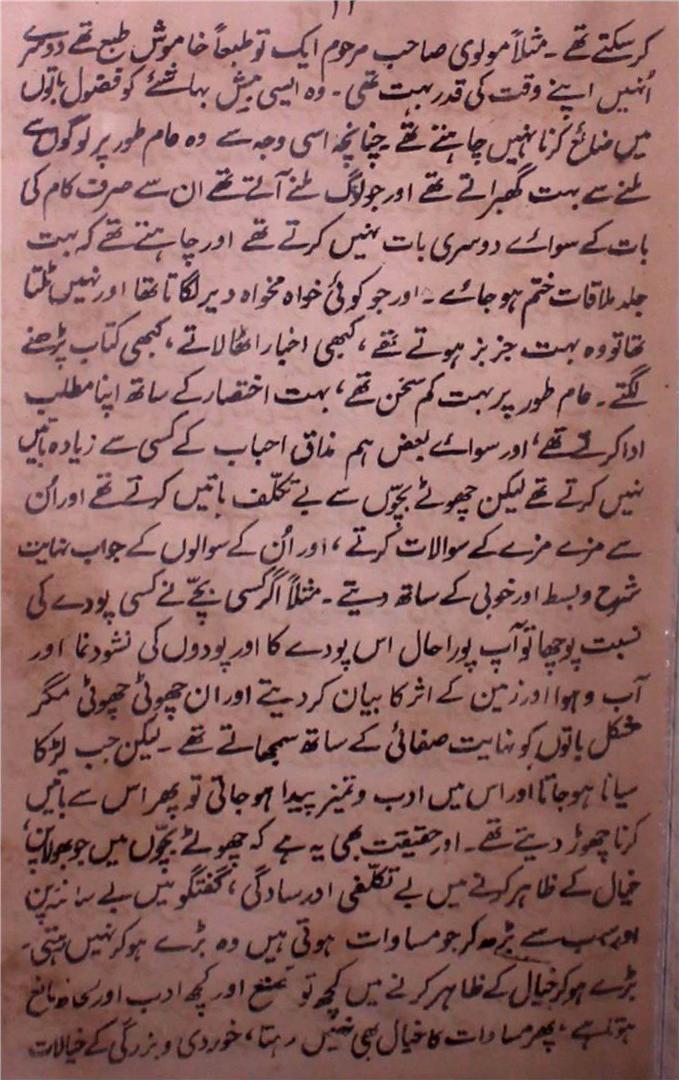 ۱۲
کرسکتے تھے ۔ مثلاً مولوی صاحب مرحوم ایک تو طبعاً خاموش طبع تھے دوسرے
اُنہیں اپنے وقت کی قدر بہت تھی ۔ وہ ایسی بیش بہا شئے کو فضول باتوں
میں ضائع کرنا نہیں چاہتے تھے چنانچہ اسی وجہ سے وہ عام طور پر لوگوں سے
ملنے سے بہت گھبراتے تھے اور جو لوگ ملنے آتے تھے ان سے صرف کام کی
بات کے سوائے دوسری بات نہیں کرتے تھے اور چاہتے تھے کہ بہت
جلد ملاقات ختم ہو جائے ۔ اور جو کوئی خواہ مخواہ دیر لگاتا تھا اور نہیں ٹلتا
تھا تو وہ بہت جزبز ہوتے تھے ، کبھی اخبار اٹھا لاتے ، کبھی کتاب پڑھنے
لگتے ۔ عام طور پر بہت کم سخن تھے ، بہت اختصار کے ساتھ اپنا مطلب
ادا کرتے تھے ، اور سوائے بعض ہم مذاق احباب کے کسی سے زیادہ باتیں
نہیں کرتے تھے لیکن چھوٹے بچّوں سے بے تکلّف باتیں کرتے تھے اور اُن
سے مزے مزے کے سوالات کرتے ، اور اُن کے سوالوں کے جواب نہایت
شرح و بسط اور خوبی کے ساتھ دیتے ۔ مثلاً اگر کسی بچّے نے کسی پودے کی
نسبت پوچھا تو آپ پورا حال اس پودے کا اور پودوں کی نشوونما اور
آب و ہوا اور زمین کے اثر کا بیان کر دیتے اور ان چھوٹی چھوٹی مگر
مشکل باتوں کو نہایت صفائی کے ساتھ سمجھاتے تھے ۔ لیکن جب لڑکا
سیانا ہو جاتا اور اس میں ادب و تمیز پیدا ہو جاتی تو پھر اس سے باتیں
کرنا چھوڑ دیتے تھے ۔ اور حقیقت بھی یہ ہے کہ چھوٹے بچّوں میں جو بھولاپن ،
خیال کے ظاہر کرنے میں بے تکلّفی اور سادگی ، گفتگو میں بے ساختہ پن
اور سب سے بڑھ کر جو مساوات ہوتی ہیں وہ بڑے ہو کر نہیں رہتی ۔
بڑے ہو کر خیال کے ظاہر کرنے میں کچھ تو تصنع اور کچھ ادب اور لحاظ مانع
ہوتا ہے ، پھر مساوات کا خیال بھی نہیں رہتا ، خوردی و بزرگی کے خیالات